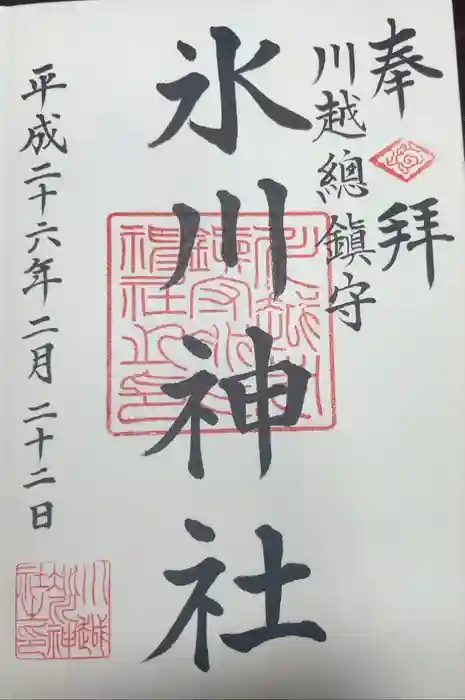 奉拜
川越總鎮守
氷川神社
平成二十六年二月二十二日